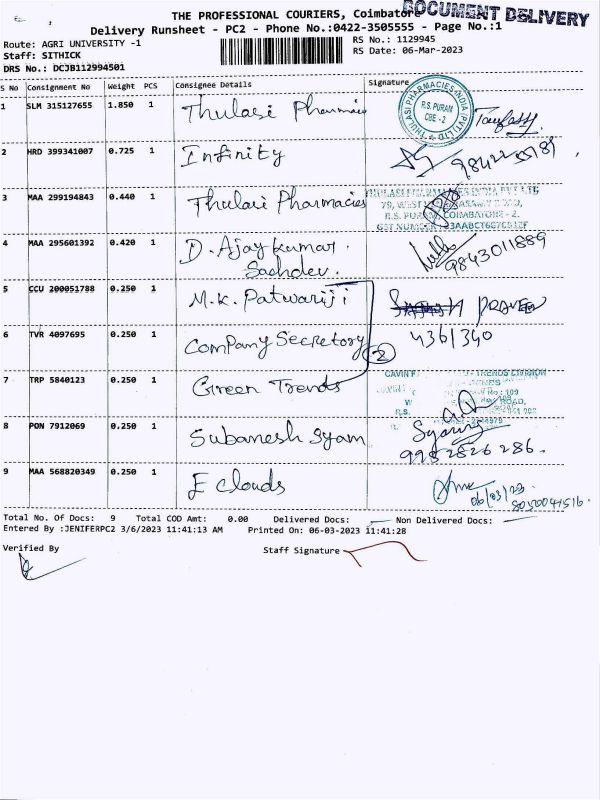 THE PROFESSIONAL COURIERS, Coimbatore
DOCUMENT DELIVERY
Delivery Runsheet - PC2 - Phone No.:0422-3505555 - Page No.:1
Route: AGRI UNIVERSITY -1
RS No.: 1129945
Staff: SITHICK
RS Date: 06-Mar-2023
DRS No.: DCJB112994501
S No Consignment No Weight PCS Consignee Details Signature
1 SLM 315127655 1.850 1 Thulasi Pharmacies
THULASI PHARMACIES INDIA (PVT) LTD
R.S. PURAM
CBE - 2
2 HRD 399341007 0.725 1 Infinity
3 MAA 299194843 0.440 1 Thulasi Pharmacies
R.S. PURAM, COIMBATORE - 2.
4 MAA 295601392 0.420 1 D. Ajay kumar.
Sachdev.
9843011889
5 CCU 200051788 0.250 1 M.K. Patwariji
6 TVR 4097695 0.250 1 Company Secretory
2
4361340
7 TRP 5840123 0.250 1 Green Trends
TRENDS DIVISION
8 PON 7912069 0.250 1 Subanesh Syam
9952526286.
9 MAA 568820349 0.250 1 E clouds
06/03/23
8050041516.
Total No. Of Docs: 9 Total COD Amt: 0.00 Delivered Docs: Non Delivered Docs:
Entered By :JENIFERPC2 3/6/2023 11:41:13 AM Printed On: 06-03-2023 11:41:28
Verified By
Staff Signature